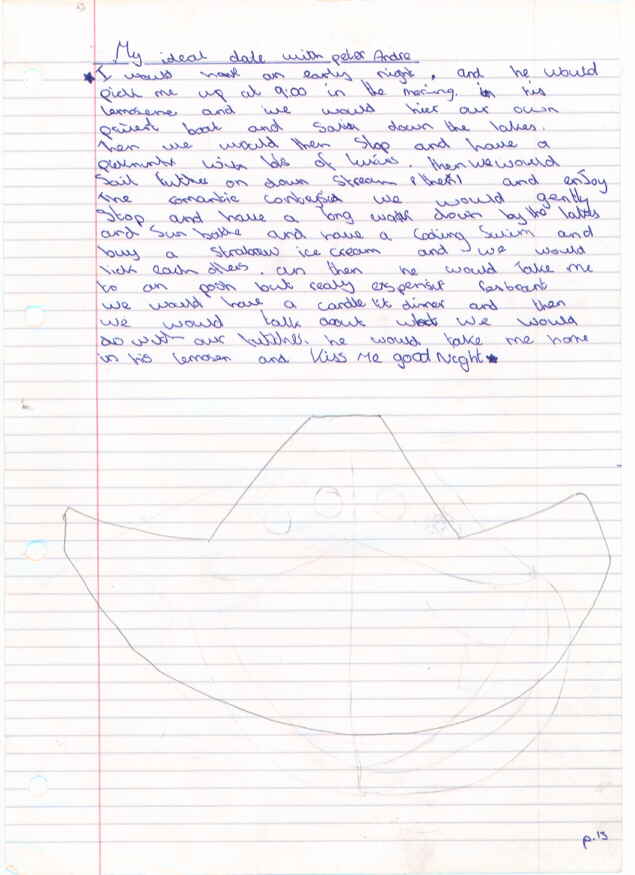 My ideal date with peter Andre
I would have an early night, and he would
pick me up at 9:00 in the morning. in his
lemosene and we would hier our own
privert boat and sail down the lakes.
Then we would then stop and have a
with lots of . then we would
Sail futher on down stream and enjoy
The romantic we would gently
Stop and have a long walk down by the lakes
and sun bathe and have a Cooling Swim and
buy a ice cream and we would
lick each others. an then he would take me
to an posh but really
we would have a candle lit dinner and then
we would talk about what we would
do with our he would take me home
in his lemosen and Kiss Me good Night
p.13